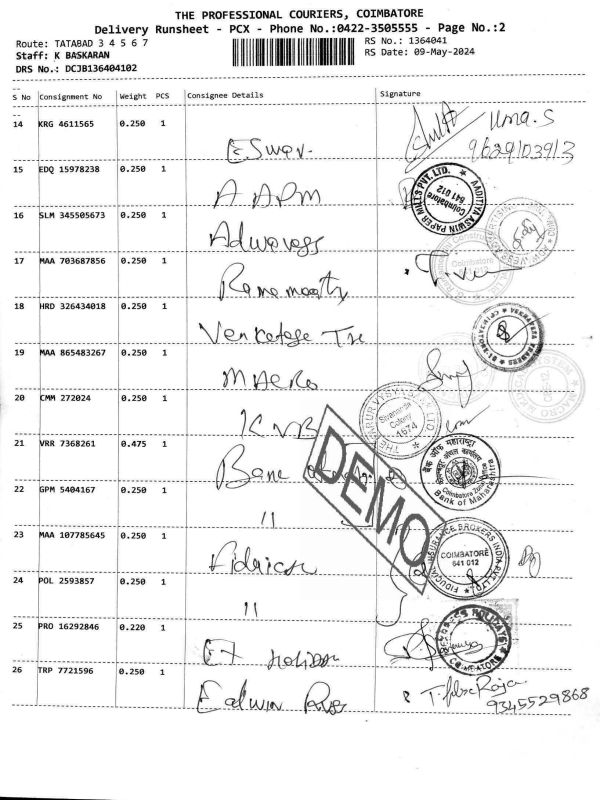 THE PROFESSIONAL COURIERS, COIMBATORE
Delivery Runsheet - PCX - Phone No.:0422-3505555 - Page No.:2
Route: TATABAD 3 4 5 6 7
RS No.: 1364041
Staff: K BASKARAN
RS Date: 09-May-2024
DRS No.: DCJB136404102
S No Consignment No Weight PCS Consignee Details Signature
14 KRG 4611565 0.250 1
Uma.S
Eswar.
9629103913
15 EDQ 15978238 0.250 1
A APM
AADITYA ASWIN PAPER MILLS PVT. LTD. Coimbatore 641 012
16 SLM 345505673 0.250 1
17 MAA 703687856 0.250 1
Coimbatore
Ramamoorthy
18 HRD 326434018 0.250 1
Venkatesa
19 MAA 865483267 0.250 1
20 CMM 272024 0.250 1
Sivananda Colony
KVB
21 VRR 7368261 0.475 1
Bank
बैंक ऑफ महाराष्ट्र
Bank of Maharashtra
DEMO
22 GPM 5404167 0.250 1
"
23 MAA 107785645 0.250 1
FIDUCIAL INSURANCE BROKERS INDIA PVT LTD
COIMBATORE
641 012
24 POL 2593857 0.250 1
"
25 PRO 16292846 0.220 1
HOLIDAYS
COIMBATORE
26 TRP 7721596 0.250 1
Edwin
9345529868